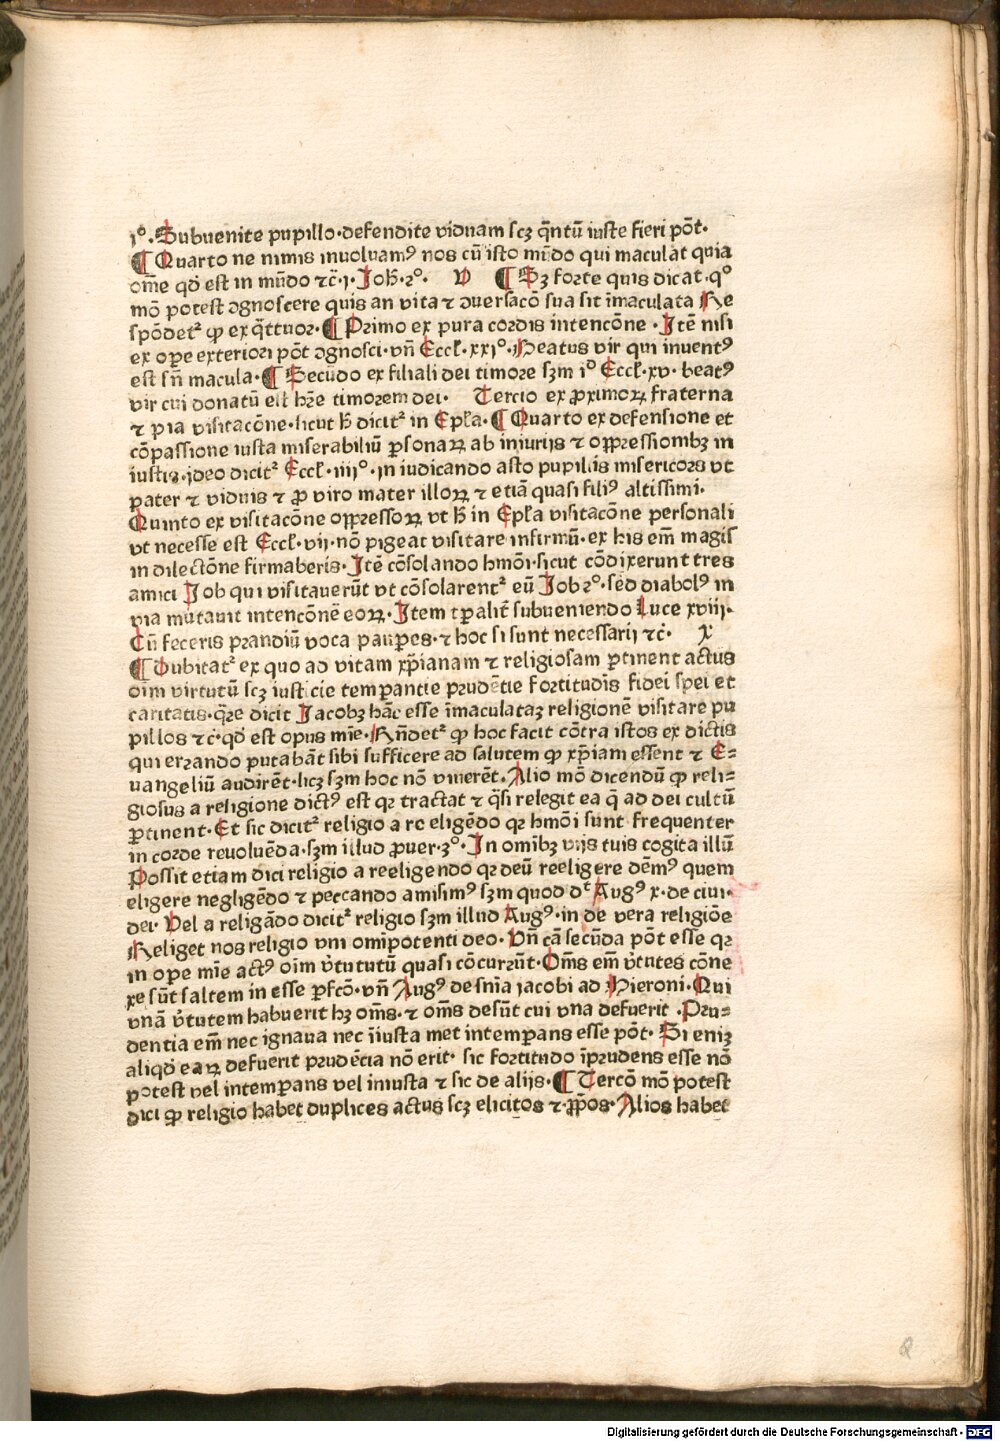 iº. Subuenite pupillo·defendite viduam scꝫ q̄ntū iuste fieri pōt·
¶ Quarto ne nimis inuoluamꝰ nos cū isto mūdo qui maculat quia
om̄e qđ est in mūdo ⁊c̄·i·Joh̄·2º· V ¶ Sꝫ forte quis dicat·qº
mō potest ꝯgnoscere quis an vita ⁊ ꝯuersacō sua sit īmaculata Re
spōdetᷣ ꝙ ex q̄ttuor·¶ Primo ex pura cordis intencōne ·Jtē nisi
ex oꝑe exteriori pōt ꝯgnosci·vn̄ Eccł·xxiº·Beatus vir qui inuentꝰ
est sn̄ macula·¶ Secūdo ex filiali dei timore sꝫm iº Eccł·xv·beatꝰ
vir cui donatū est hr̄e timorem dei· Tercio ex ꝓximoꝝ fraterna
⁊ pia visitacōne·sicut h̄ dicitᷣ in Epła·¶ Quarto ex defensione et
cōpassione iusta miserabiliū ꝑsonaꝝ ab iniurijs ⁊ oppressionibꝫ in
iustis·ideo dicitᷣ Eccł·iiijº·in iudicando asto pupillis misericors vt
pater ⁊ viduis ⁊ ꝓ viro mater illoꝝ ⁊ etiā quasi filiꝰ altissimi·
Quinto ex visitacōne oppressoꝝ vt h̄ in Epła visitacōne personali
vt necesse est Eccł·vij·nō pigeat visitare infirmū·ex his em̄ magis
in dilectōne firmaberis·Jtē cōsolando hmōi·sicut cōdixerunt tres
amici Job qui visitauerūt vt cōsolarentᷣ eū Job 2º·sed diabolꝰ in
via mutauit intencōnē eoꝝ·Jtem tꝑalit̄ subueniendo Luce xviij·
Cū feceris prandiū voca pauꝑes·⁊ hoc si sunt necessarij ⁊c̄· X
¶ Dubitatᷣ ex quo ad vitam xp̄ianam ⁊ religiosam ꝑtinent actus
oīm virtutū scꝫ iusticie temꝑantie prudētie fortitudīs fidei spei et
caritatis·q̄re dicit Jacobꝫ hāc esse īmaculataꝫ religionē visitare pu
pillos ⁊c̄·qđ est opus mīe·Rn̄detᷣ ꝙ hoc facit cōtra istos ex dictis
qui errando putabāt sibi sufficere ad salutem ꝙ xp̄iam essent ⁊ E⸗
uangeliū audirēt·licꝫ sꝫm hoc nō viuerēt·Alio mō dicendū ꝙ reli⸗
giosus a religione dictꝰ est qꝛ tractat ⁊ q̄si relegit ea q̄ ad dei cultū
ꝑtinent·Et sic dicitᷣ religio a re eligēdo qꝛ hmōi sunt frequenter
in corde reuoluēda·sꝫm illud ꝓuer·3º·Jn omībꝫ vijs tuis cogita illū
Possit etiam dici religio a reeligendo qꝛ deū reeligere dēmꝰ quem
eligere negligēdo ⁊ peccando amisimꝰ sꝫm quod dᵗ Augꝰ x·de ciui·
dei· Vel a religādo dicitᷣ religio sꝫm illud Augꝰ·in de vera religiōe
Religet nos religio vni omīpotenti deo·Vn̄ cā secūda pōt esse qꝛ
in ope mīe actꝰ oīm v̄tututū quasi cōcurrūt·Om̄s em̄ v̄tutes cōne
xe sūt saltem in esse ꝑfcō·vn̄ Augꝰ de sn̄ia iacobi ad Hieroni·Qui
vnā v̄tutem habuerit hꝫ om̄s·⁊ om̄s desūt cui vna defuerit ·Pru⸗
dentia em̄ nec ignaua nec iīusta met intemꝑans esse pōt· Si enīꝫ
aliqđ eaꝝ defuerit prudēcia nō erit· sic fortitudo īprudens esse nō
potest vel intemꝑans vel iniusta ⁊ sic de alijs·¶ Tercō mō potest
dici ꝙ religio habet duplices actus scꝫ elicitos ⁊·ꝓp̄os·Alios habet
Digitalisierung gefördert durch die Deutsche Forschungsgemeinschaft - DFG